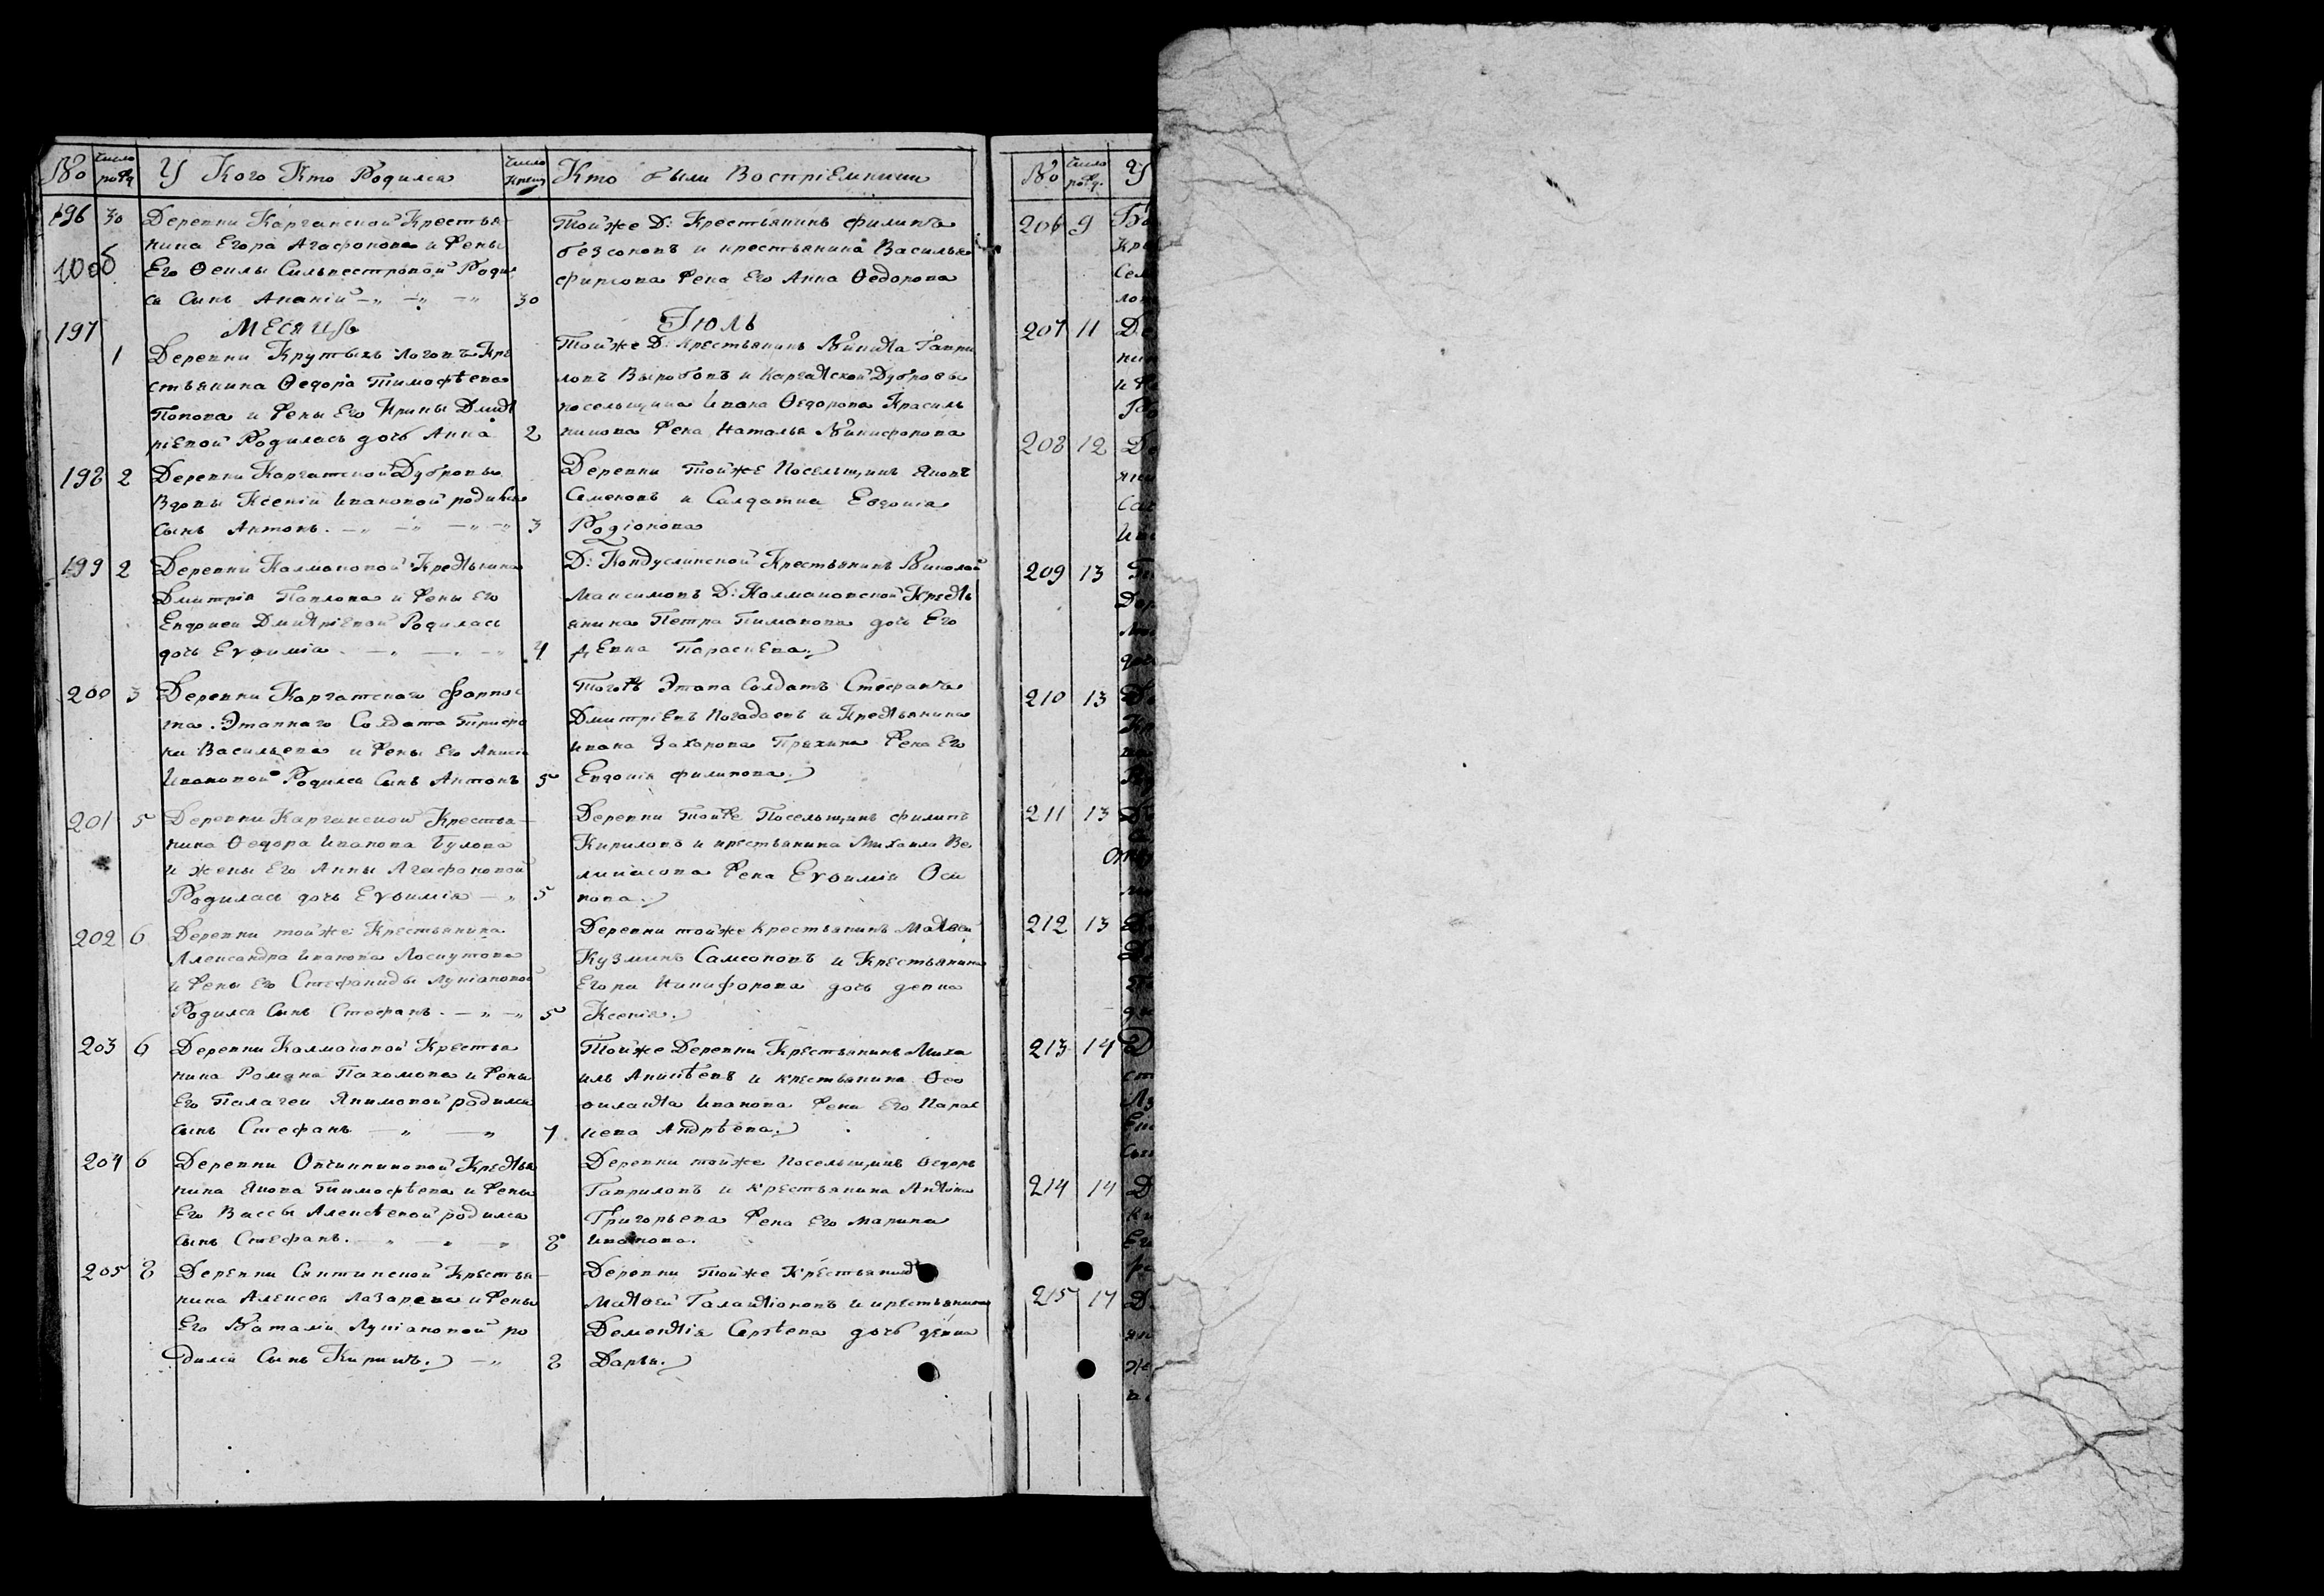 № число рожд У Кого Кто Родился число крещ Кто были Воспріемники
196 30 Деревни Карганской Крестья-
нина Егора Агафонова и жены
Его Ѳеклы Сильвестровой Роди
ся Сынъ Ананій 30
Тойже Д: Крестьянинъ Филипъ
безсоновъ и крестьянина Василья
Фирсова жена Его Анна Ѳедорова
100б
Месяцъ Іюль
197 1 Деревни Крутыхъ Логовъ Кре
стьянина Ѳедора Тимофѣева
Попова и жены Его Ирины Дмит
ріевой Родилась дочь Анна 2
Тойже Д: крестьянинъ Никита Гаври
ловъ Выробовъ и Каргатской Дубровы
посельщика Ивана Ѳедорова Красиль
никова жена Наталья Никифорова
198 2 Деревни Каргатской Дубровы
Вдовы Ксеніи Ивановой родился
сынъ Антонъ. 3
Деревни тойже Посельщикъ Яковъ
Семеновъ и Салдатка Евдокія
Родіонова
199 2 Деревни Калмаковой Крестьянина
Дмитрія Павлова и жены Его
Евдокеи Дмитріевой Родилась
дочь Евѳимія 4
Д: Кондуслинской Крестьянинъ Николай
Максимовъ Д: Калмаковской Кресть
янина Петра Пимакова дочь Его
дѣвка Параскева.
200 3 Деревни Каргатскаго Форпос
та. Этапнаго Солдата Трифо
на Васильева и жены Его Анисіи
Ивановой Родился Сынъ Антонъ 5
Тогожъ Этапа Солдатъ Стефанъ
Дмитріевъ Погадаевъ и Крестьянина
Ивана Захарова Пряхина жена Его
Евдокія Филипова.
201 5 Деревни Карганской Крестья-
нина Ѳедора Иванова Булова
и жены Его Анны Агафоновой
Родилась дочь Евѳимія 5
Деревни Тойже Посельщикъ Филипъ
Кириловъ и крестьянина Михаила Ве
жена Евѳимія Оси
пова.
202 6 Деревни тойже Крестьянина
Александра Иванова Лоскутова
и жены Его Стефаниды Лукіановой
Родился Сынъ Стефанъ. 5
Деревни тойже Крестьянинъ Матвей
Кузминъ Самсоновъ и Крестьянина
Егора Никифорова дочь девка
Ксенія.
203 6 Деревни Калмаковой Крестья
нина Романа Пахомова и жены
Его Палагеи Якимовой родился
сынъ Стефанъ 7
Тойже Деревни Крестьянинъ Миха
илъ Аникѣевъ и крестьянина Ѳео
филакта Иванова жена Его Парас
кева Андрѣева.
204 6 Деревни Овчинниковой Крестья
нина Якова Тимофѣева и жены
Его Вассы Алексѣевой родился
сынъ Стефанъ. 8
Деревни тойже Посельщикъ Ѳедоръ
Гавриловъ и крестьянина Антона
Григорьева жена Его Марина
Иванова.
205 8 Деревни Сяптинской Крестья-
нина Алексея Лазарева и жены
Его Наталіи Лукіановой ро
дился Сынъ Кирикъ. 8
Деревни Тойже Крестьянинъ
Матвей Галактіоновъ и крестьянина
Дементія Сергѣева дочь девка
Дарья.
№ число рожд. У
206 9
207 11
208 12
209 13
210 13
211 13
212 13
213 14
214 14
215 17